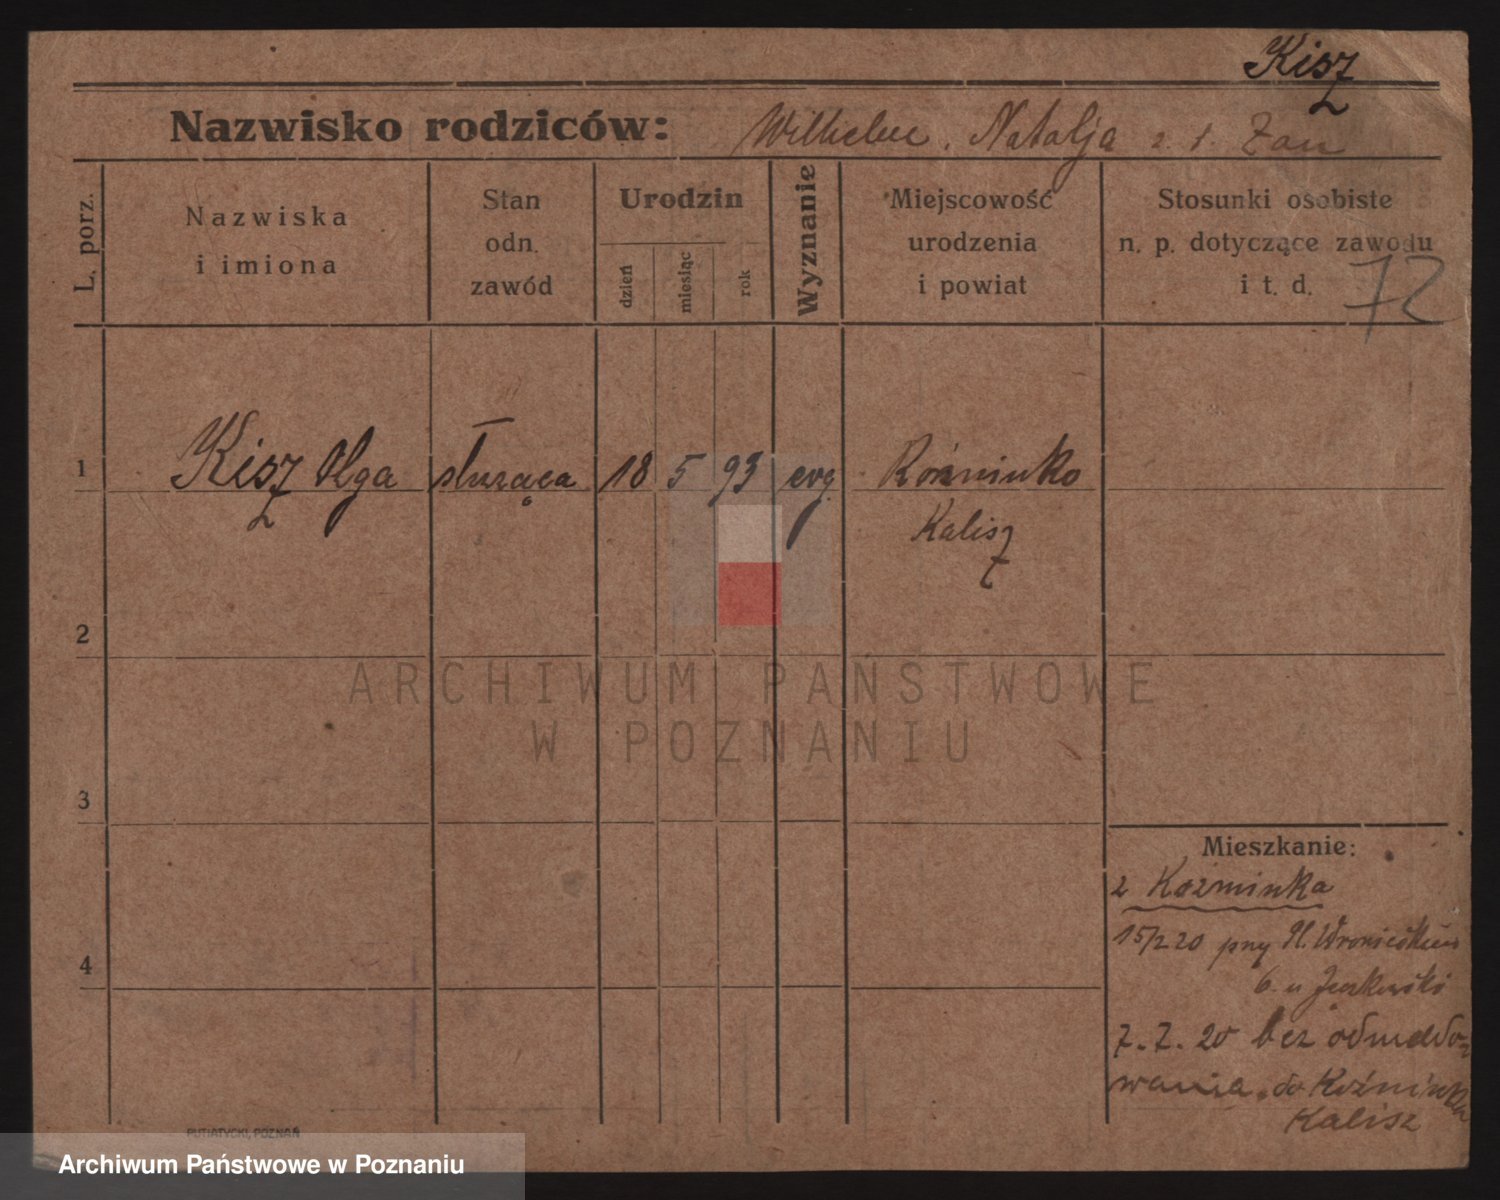 Kisz
Nazwisko rodziców: Wilhelm, Natalja z d. Zau
L. porz.
Nazwiska
i imiona
Stan
odn.
zawód
Urodzin
dzień
miesiąc
rok
Wyznanie
Miejscowość
urodzenia
i powiat
Stosunki osobiste
n. p. dotyczące zawodu
i t. d.
72
1 Kisz Olga służąca 18 5 93 evg. Koźminko
Kalisz
2
3
4
Mieszkanie:
z Koźminka
15/2 20 przy Pl.
6. u
7. 7. 20 bez odmeldo-
wania do Koźminka
Kalisz
PUTIATYCKI, POZNAŃ
ARCHIWUM PAŃSTWOWE
W POZNANIU
Archiwum Państwowe w Poznaniu